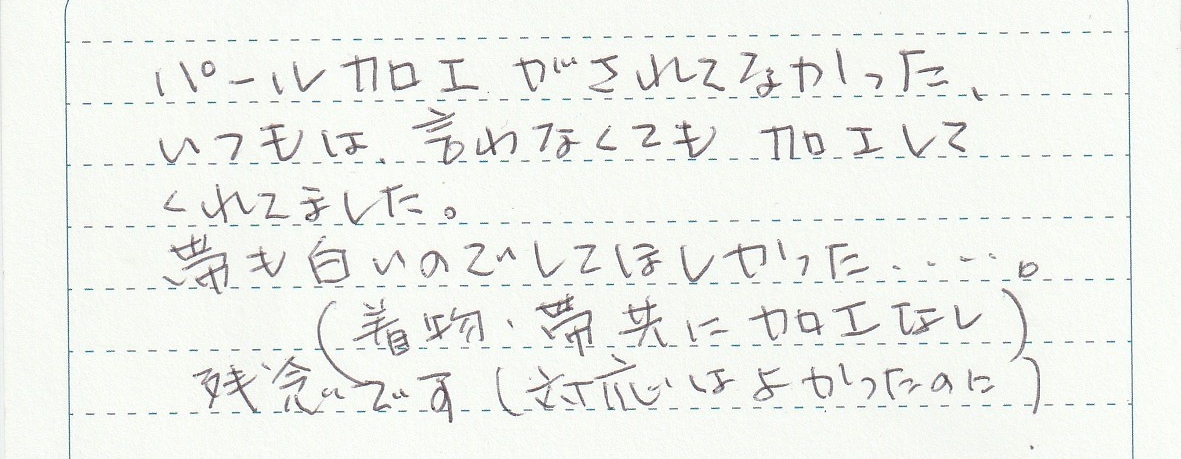 パール加工がされてなかった、
いつもは、言わなくても加工して
くれてました。
帯も白いのでしてほしかった.....。
(着物、帯共に加工なし)
残念です(対応はよかったのに)